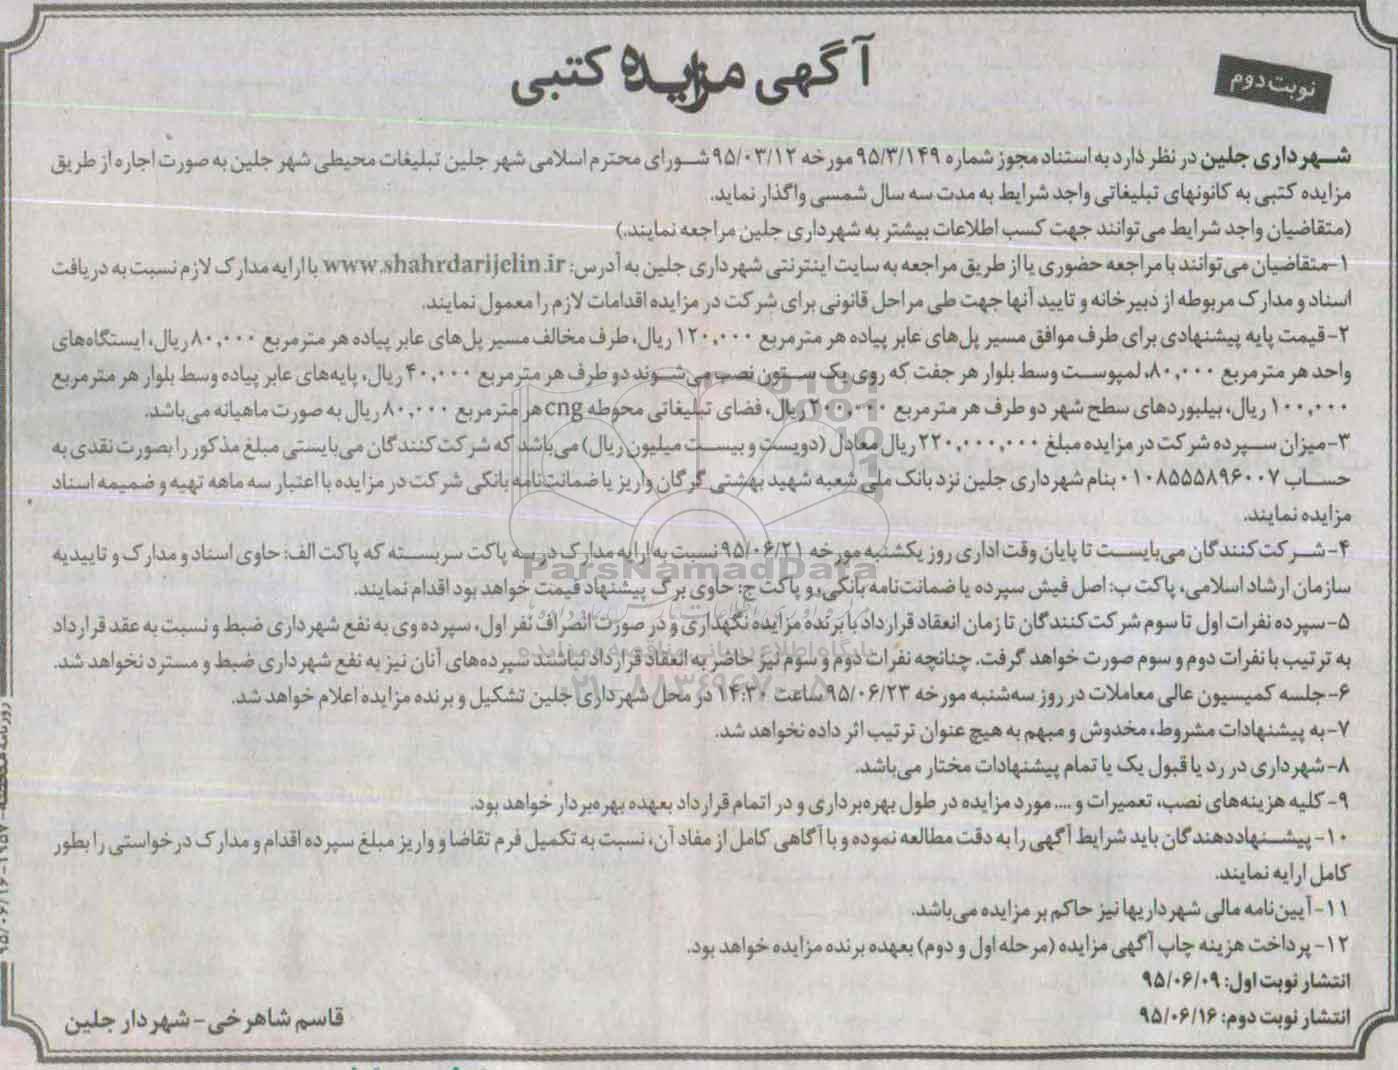 آگهی مزایده کتبی
نوبت دوم
شهرداری جلین در نظر دارد به استناد مجوز شماره ۹۵/۳/۱۴۹ مورخه ۹۵/۰۳/۱۲ شورای محترم اسلامی شهر جلین تبلیغات محیطی شهر جلین به صورت اجاره از طریق
مزایده کتبی به کانونهای تبلیغاتی واجد شرایط به مدت سه سال شمسی واگذار نماید.
(متقاضیان واجد شرایط می‌توانند جهت کسب اطلاعات بیشتر به شهرداری جلین مراجعه نمایند.)
۱-متقاضیان می‌توانند با مراجعه حضوری یا از طریق مراجعه به سایت اینترنتی شهرداری جلین به آدرس: www.shahrdarijelin.ir با ارایه مدارک لازم نسبت به دریافت
اسناد و مدارک مربوطه از دبیرخانه و تایید آنها جهت طی مراحل قانونی برای شرکت در مزایده اقدامات لازم را معمول نمایند.
۲-قیمت پایه پیشنهادی برای طرف موافق مسیر پل‌های عابر پیاده هر مترمربع ۱۲۰,۰۰۰ ریال، طرف مخالف مسیر پل‌های عابر پیاده هر مترمربع ۸۰,۰۰۰ ریال، ایستگاه‌های
واحد هر مترمربع ۸۰,۰۰۰، لمپوست وسط بلوار هر جفت که روی یک ستون نصب می‌شوند دو طرف هر مترمربع ۴۰,۰۰۰ ریال، پایه‌های عابر پیاده وسط بلوار هر مترمربع
۱۰۰,۰۰۰ ریال، بیلبوردهای سطح شهر دو طرف هر مترمربع ۲۰۰,۰۰۰ ریال، فضای تبلیغاتی محوطه cng هر مترمربع ۸۰,۰۰۰ ریال به صورت ماهیانه می‌باشد.
۳-میزان سپرده شرکت در مزایده مبلغ ۲۲۰,۰۰۰,۰۰۰ ریال معادل (دویست و بیست میلیون ریال) می‌باشد که شرکت‌کنندگان می‌بایستی مبلغ مذکور را بصورت نقدی به
حساب ۰۱۰۸۵۵۵۸۹۶۰۰۷ بنام شهرداری جلین نزد بانک ملی شعبه شهید بهشتی گرگان واریز یا ضمانت‌نامه بانکی شرکت در مزایده با اعتبار سه ماهه تهیه و ضمیمه اسناد
مزایده نمایند.
۴-شرکت‌کنندگان می‌بایست تا پایان وقت اداری روز یکشنبه مورخه ۹۵/۰۶/۲۱ نسبت به ارایه مدارک در سه پاکت سربسته که پاکت الف: حاوی اسناد و مدارک و تاییدیه
سازمان ارشاد اسلامی، پاکت ب: اصل فیش سپرده یا ضمانت‌نامه بانکی، و پاکت ج: حاوی برگ پیشنهاد قیمت خواهد بود اقدام نمایند.
۵-سپرده نفرات اول تا سوم شرکت‌کنندگان تا زمان انعقاد قرارداد با برنده مزایده نگهداری و در صورت انصراف نفر اول، سپرده وی به نفع شهرداری ضبط و نسبت به عقد قرارداد
به ترتیب با نفرات دوم و سوم صورت خواهد گرفت. چنانچه نفرات دوم و سوم نیز حاضر به انعقاد قرارداد نباشند سپرده‌های آنان نیز به نفع شهرداری ضبط و مسترد نخواهد شد.
۶-جلسه کمیسیون عالی معاملات در روز سه‌شنبه مورخه ۹۵/۰۶/۲۳ ساعت ۱۴:۳۰ در محل شهرداری جلین تشکیل و برنده مزایده اعلام خواهد شد.
۷-به پیشنهادات مشروط، مخدوش و مبهم به هیچ عنوان ترتیب اثر داده نخواهد شد.
۸-شهرداری در رد یا قبول یک یا تمام پیشنهادات مختار می‌باشد.
۹-کلیه هزینه‌های نصب، تعمیرات و .... مورد مزایده در طول بهره‌برداری و در اتمام قرارداد بعهده بهره‌بردار خواهد بود.
۱۰-پیشنهاددهندگان باید شرایط آگهی را به دقت مطالعه نموده و با آگاهی کامل از مفاد آن، نسبت به تکمیل فرم تقاضا و واریز مبلغ سپرده اقدام و مدارک درخواستی را بطور
کامل ارایه نمایند.
۱۱-آیین‌نامه مالی شهرداریها نیز حاکم بر مزایده می‌باشد.
۱۲-پرداخت هزینه چاپ آگهی مزایده (مرحله اول و دوم) بعهده برنده مزایده خواهد بود.
انتشار نوبت اول: ۹۵/۰۶/۰۹
انتشار نوبت دوم: ۹۵/۰۶/۱۶
قاسم شاهرخی-شهردار جلین
ParsNamadData